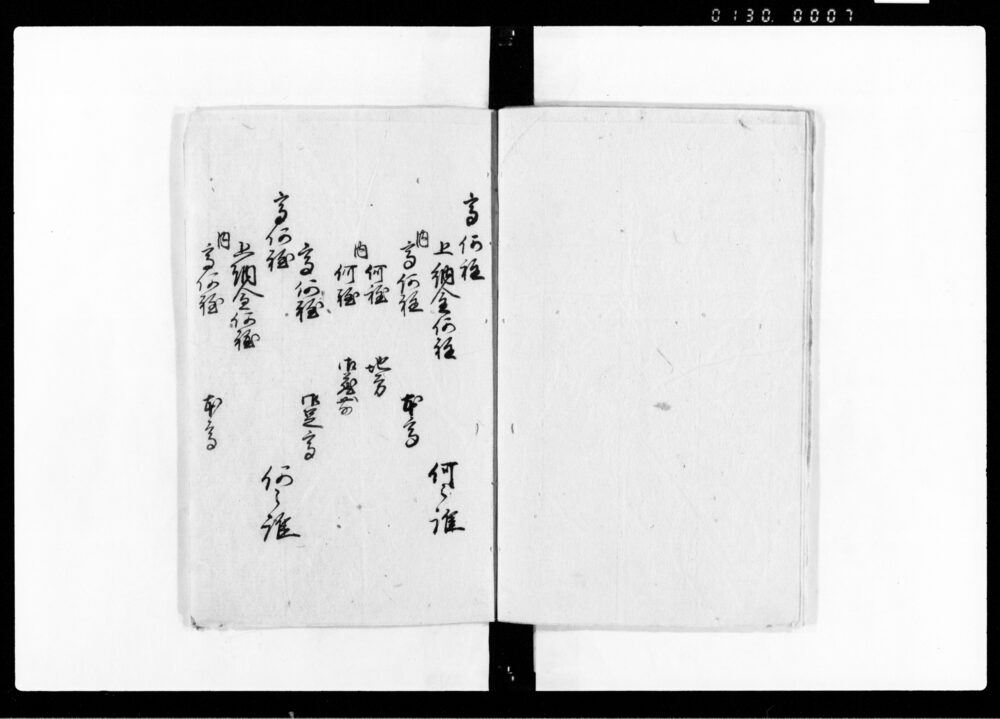 0130.0007
高何程
上納金何程
何之誰
内
高何程
本高
何程
地方
内
何程
御蔵前
高何程
御足高
高何程
何之誰
上納金何程
内
高何程
本高